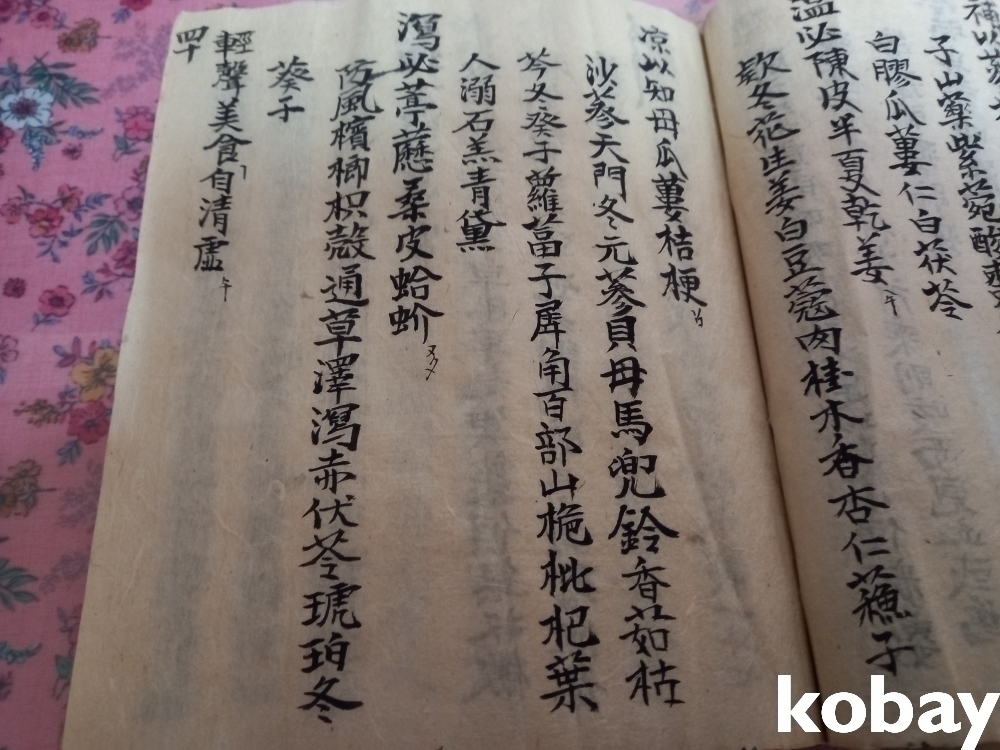 補以
子山藥紫菀酸
白膠瓜蔞仁白茯苓
溫必陳皮半夏乾姜
款冬花生姜白豆蔻肉桂木香杏仁蘓子
凉以知母瓜蔞桔梗
沙蔘天門冬元蔘貝母馬兜鈴香茹枯
芩冬葵子蘿葍子犀角百部山梔枇杷葉
人溺石羔青黛
瀉必葶藶桑皮蛤蚧
防風檳榔枳殼通草澤瀉赤伏苓琥珀冬
葵子
輕聲美食自清虛
四十
kobay